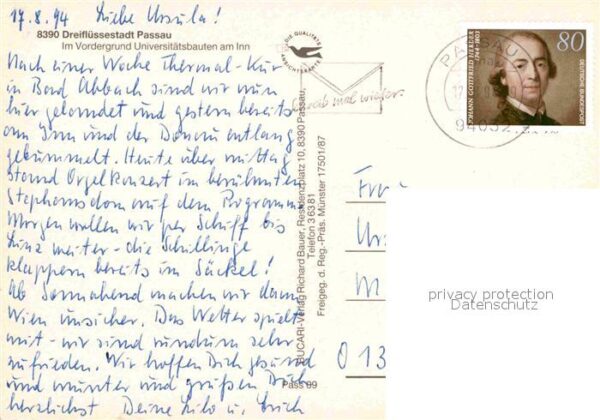 17.8.94 Liebe Ursula!
8390 Dreiflüssestadt Passau
Im Vordergrund Universitätsbauten am Inn
Nach einer Woche Thermal-Kur
in Bad Abbach sind wir nun
hier gelandet und gestern bereits
am Inn und der Donau entlang
gebummelt. Heute über mittag
stand Orgelkonzert im berühmten
Stephansdom auf dem Programm
Morgen wollen wir per Schiff bis
Linz weiter - die Schillinge
klappern bereits im Säckel!
Ab Sonnabend machen wir dann
Wien unsicher. Das Wetter spielt
mit - wir sind rundum sehr
zufrieden. Wir hoffen Dich gesund
und munter und grüßen Dich
herzlichst Deine Lilo u. Erich
DIE QUALITÄTS
ANSICHTSKARTE
Schreib mal wieder.
PASSAU
94032
80
JOHANN GOTTFRIED HERDER
1744-1803
DEUTSCHE BUNDESPOST
BUCARI-Verlag Richard Bauer, Residenzplatz 10, 8390 Passau,
Telefon 36381
Freigeg. d. Reg.-Präs. Münster 17501/87
Pass 89
Fra
Ur
M
013
privacy protection
Datenschutz